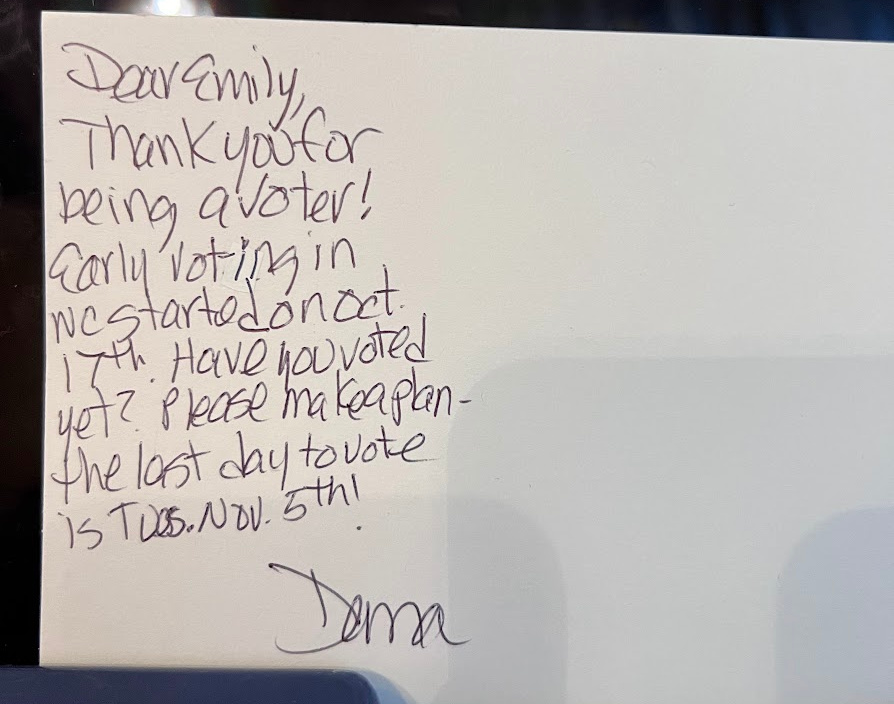 Dear Emily,
Thank you for
being a voter!
Early voting in
NC started on Oct.
17th. Have you voted
yet? Please make a plan-
the last day to vote
is Tues. Nov. 5th!